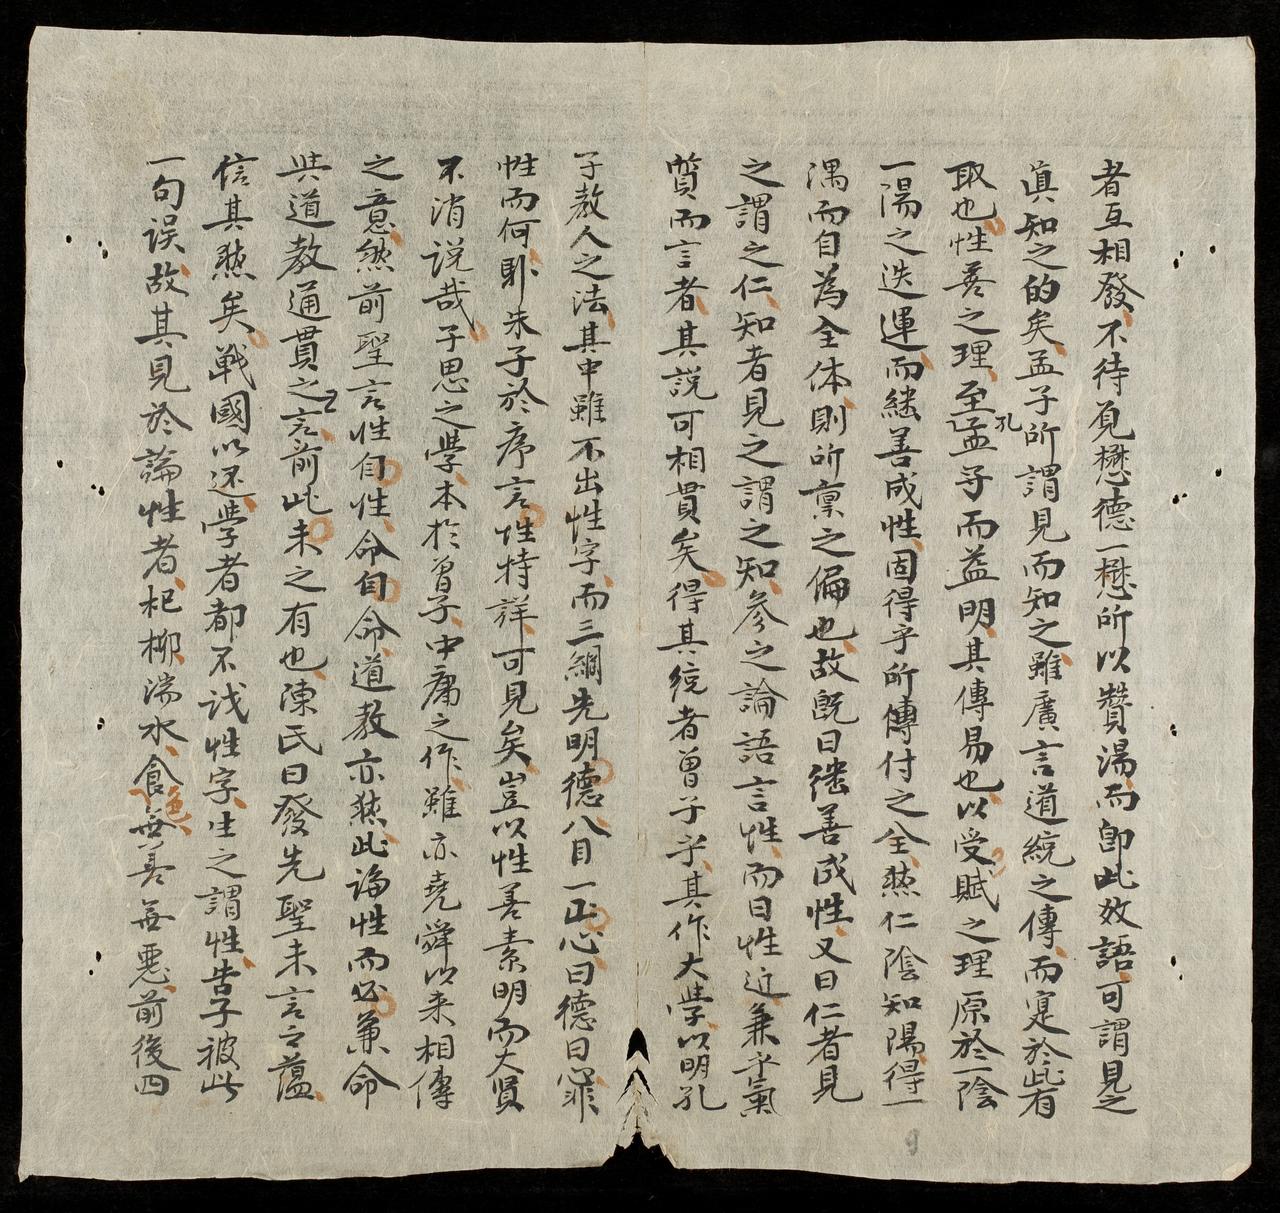 者互相發不待覓懋德一懋所以贊湯而卽此效語可謂見之
眞知之的矣孟子所謂見而知之雖廣言道統之傳而寔於此有
取也性善之理至孔孟子而益明其傳易也以受賦之理原於一陰
一陽之迭運而繼善成性固得乎所傳付之全然仁陰知陽得一
隅而自為全体則所稟之偏也故旣曰繼善成性又曰仁者見
之謂之仁知者見之謂之知參之論語言性而曰性近兼乎氣
質而言者其說可相貫矣得其統者曾子乎其作大學以明孔
子教人之法其中雖不出性字而三綱先明德八目一正心曰德曰心罪
性而何耶朱子於序言性特詳可見矣豈以性善素明而大賢
不消說哉子思之學本於曾子中庸之作雖亦堯舜以来相傳
之意然前聖言性自性命自命道教亦然此論性而必兼命
與道教通貫之言前此未之有也陳氏曰發先聖未言之蘊
信其然矣戰國以還學者都不識性字生之謂性告子被此
一句误故其見於論性者杞柳湍水食色無善無惡前後四